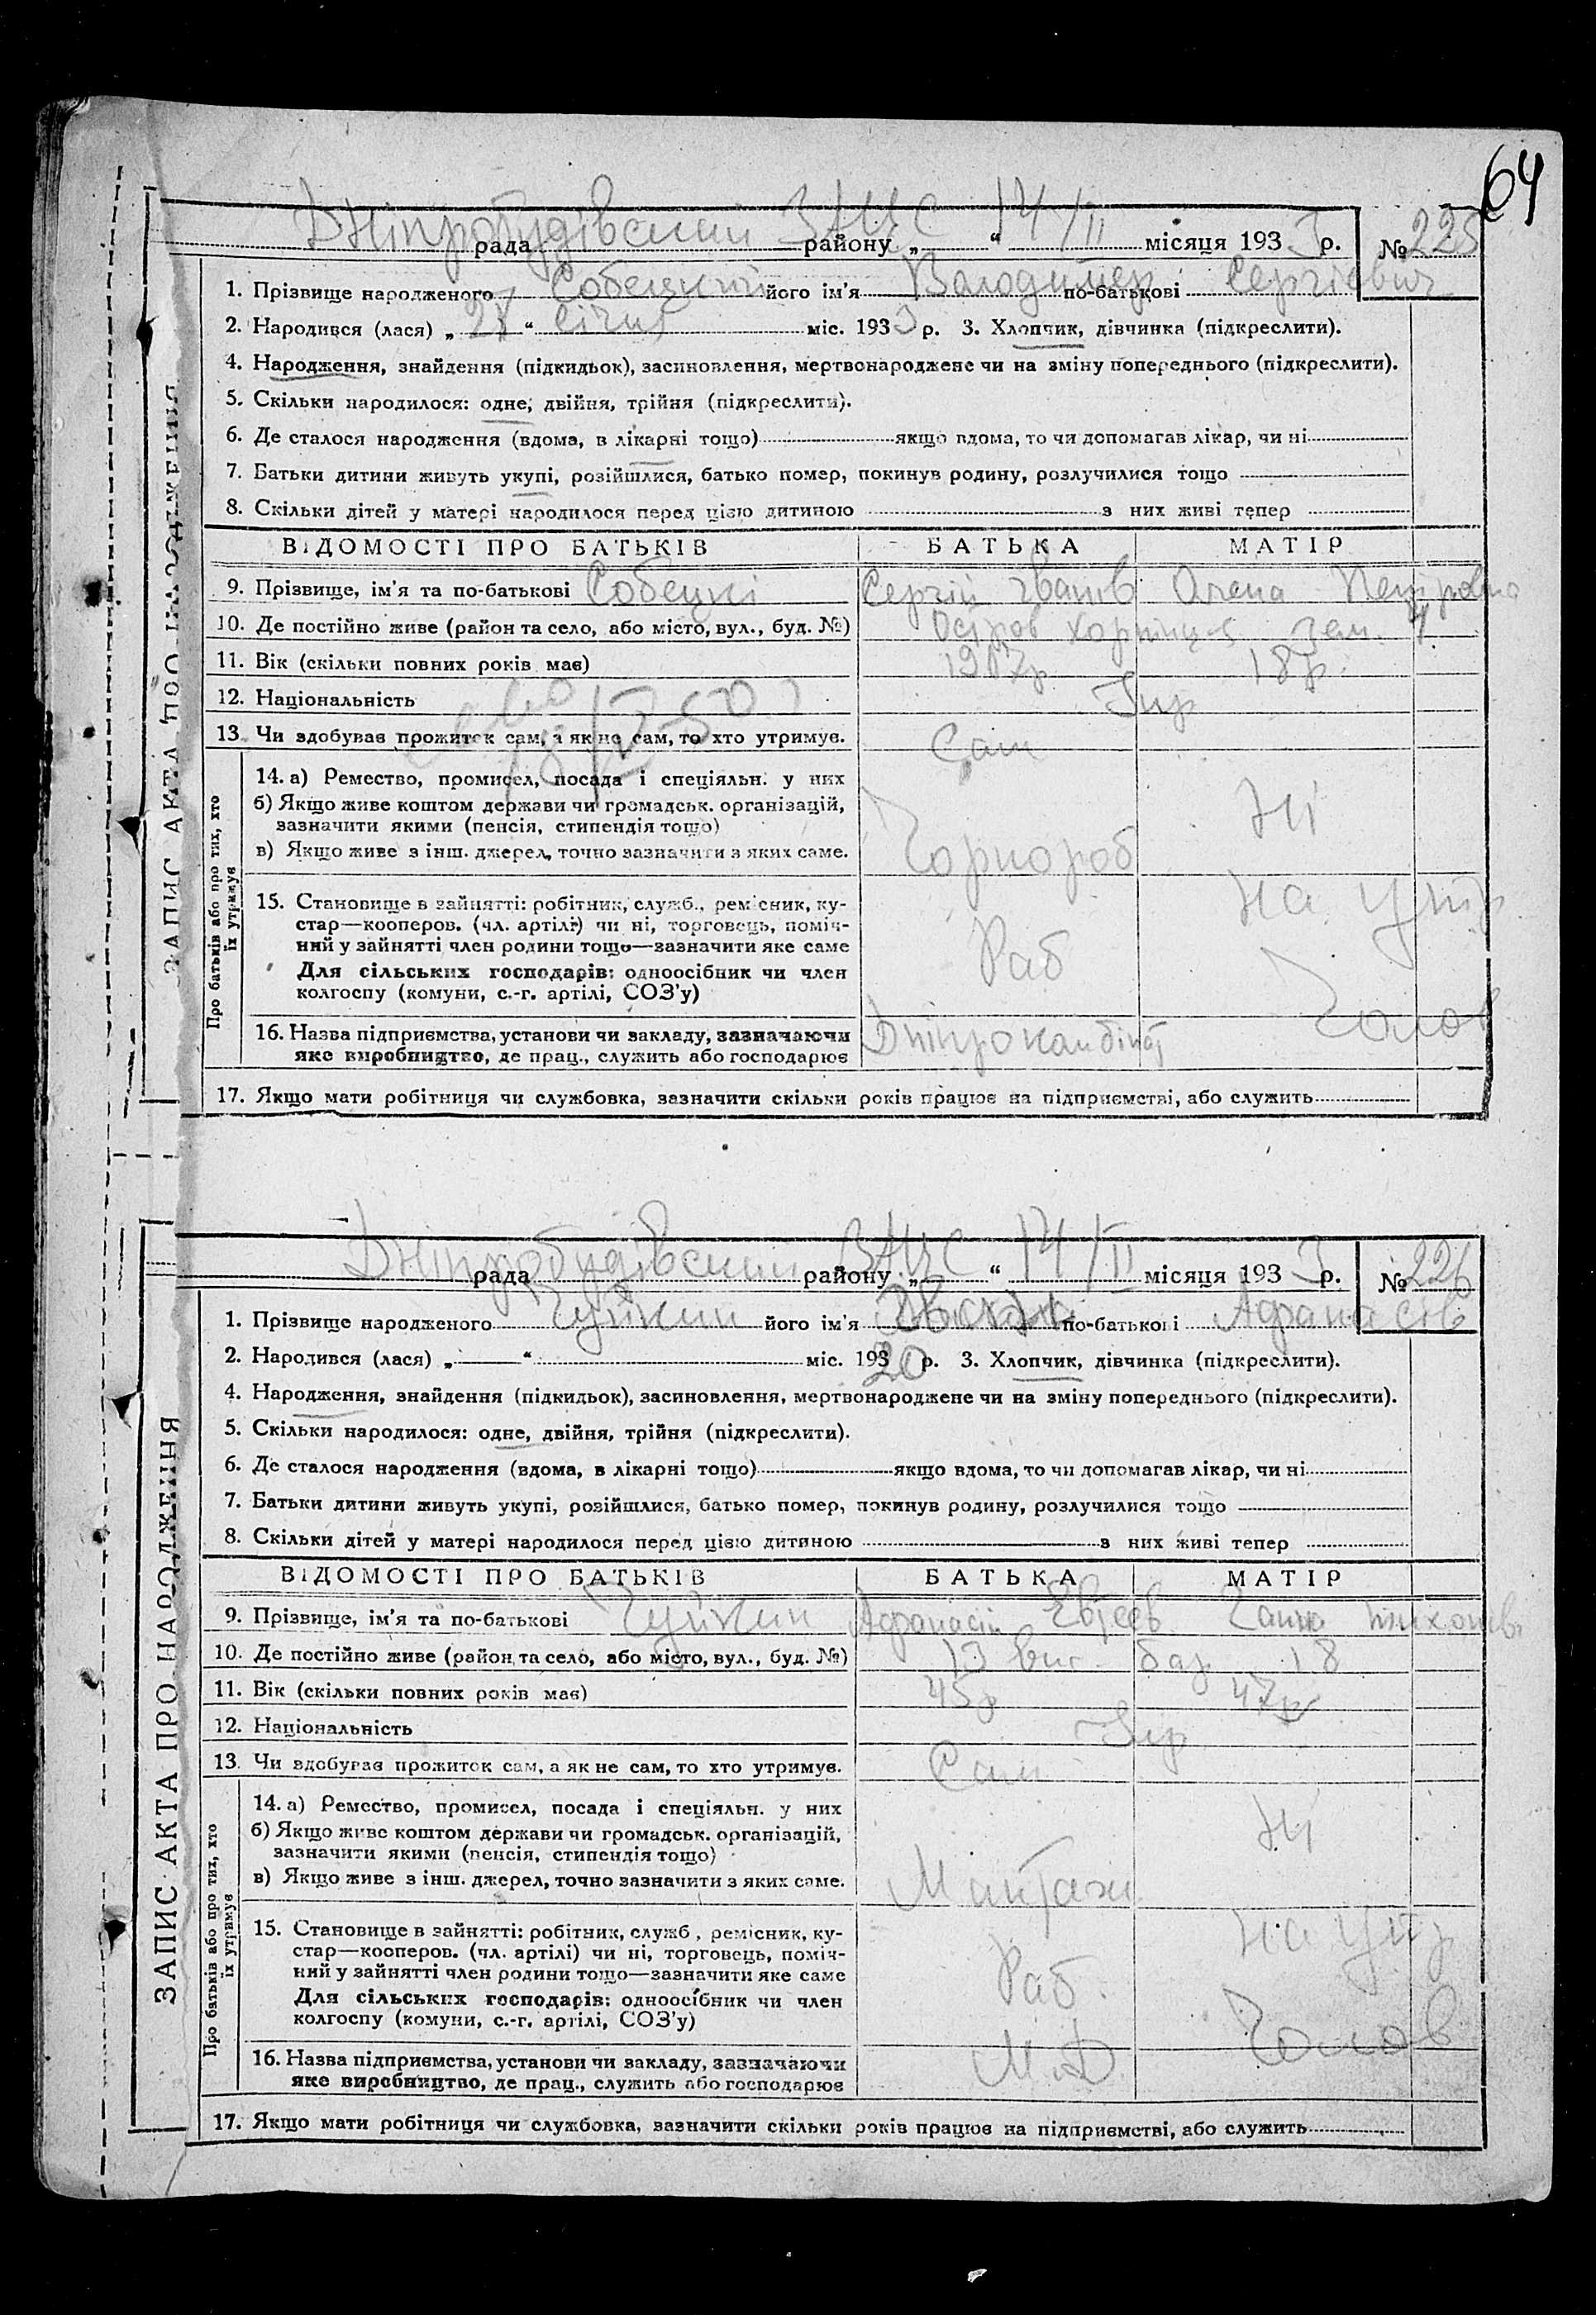 64
Дніпробудівский ЗАЦС 14/II
рада району „ “ місяця 1933 р. № 225
1. Прізвище народженого Собецкий його ім'я Володимер по-батькові Сергієвич
2. Народився (лася) „ 27 “ січня міс. 1933 р. 3. Хлопчик, дівчинка (підкреслити).
4. Народження, знайдення (підкидьок), засиновлення, мертвонароджене чи на зміну попереднього (підкреслити).
5. Скільки народилося: одне, двійня, трійня (підкреслити).
6. Де сталося народження (вдома, в лікарні тощо) якщо вдома, то чи допомагав лікар, чи ні
7. Батьки дитини живуть укупі, розійшлися, батько помер, покинув родину, розлучилися тощо
8. Скільки дітей у матері народилося перед цією дитиною з них живі тепер
ВІДОМОСТІ ПРО БАТЬКІВ БАТЬКА МАТІР
9. Прізвище, ім'я та по-батькові Собецкі Сергій Іванів Олена Петровна
10. Де постійно живе (район та село, або місто, вул., буд. №) Остров Хортиця зем. 4
11. Вік (скільки повних років має) 1907р 18р.
12. Національність Укр
13. Чи здобував прожиток сам, а як не сам, то хто утримує. Сам
14. а) Ремество, промисел, посада і спеціяльн. у них
б) Якщо живе коштом держави чи громадськ. організацій,
зазначити якими (пенсія, стипендія тощо)
в) Якщо живе з інш. джерел, точно зазначити з яких саме.
Чорнороб Ні
15. Становище в зайнятті: робітник, служб., ремісник, ку-
стар—кооперов. (чл. артілі) чи ні, торговець, поміч-
ний у зайнятті член родини тощо—зазначити яке саме
Для сільських господарів: одноосібник чи член
колгоспу (комуни, с.-г. артілі, СОЗ'у)
Раб На утр
16. Назва підприємства, установи чи закладу, зазначаючи
яке виробництво, де прац., служить або господарює
Дніпрокомбінат Чолов
17. Якщо мати робітниця чи службовка, зазначити скільки років працює на підприємстві, або служить
Про батьків або про тих, хто
їх утримує
ЗАПИС АКТА ПРО НАРОДЖЕННЯ
Дніпробудівский ЗАЦС 14/II
рада району „ “ місяця 1933 р. № 226
1. Прізвище народженого Чуйкин його ім'я по-батькові Афанасів
2. Народився (лася) „ “ міс. 193 20 р. 3. Хлопчик, дівчинка (підкреслити).
4. Народження, знайдення (підкидьок), засиновлення, мертвонароджене чи на зміну попереднього (підкреслити).
5. Скільки народилося: одне, двійня, трійня (підкреслити).
6. Де сталося народження (вдома, в лікарні тощо) якщо вдома, то чи допомагав лікар, чи ні
7. Батьки дитини живуть укупі, розійшлися, батько помер, покинув родину, розлучилися тощо
8. Скільки дітей у матері народилося перед цією дитиною з них живі тепер
ВІДОМОСТІ ПРО БАТЬКІВ БАТЬКА МАТІР
9. Прізвище, ім'я та по-батькові Чуйкин Афанасій Євсеев Ганна Тихонів
10. Де постійно живе (район та село, або місто, вул., буд. №) 13 вис. бар 18
11. Вік (скільки повних років має) 45р 47р
12. Національність Укр
13. Чи здобував прожиток сам, а як не сам, то хто утримує. Сам
14. а) Ремество, промисел, посада і спеціяльн. у них
б) Якщо живе коштом держави чи громадськ. організацій,
зазначити якими (пенсія, стипендія тощо)
в) Якщо живе з інш. джерел, точно зазначити з яких саме.
Монтажн Ні
15. Становище в зайнятті: робітник, служб., ремісник, ку-
стар—кооперов. (чл. артілі) чи ні, торговець, поміч-
ний у зайнятті член родини тощо—зазначити яке саме
Для сільських господарів: одноосібник чи член
колгоспу (комуни, с.-г. артілі, СОЗ'у)
Раб. На утр
16. Назва підприємства, установи чи закладу, зазначаючи
яке виробництво, де прац., служить або господарює
М.Д Чолов
17. Якщо мати робітниця чи службовка, зазначити скільки років працює на підприємстві, або служить
Про батьків або про тих, хто
їх утримує
ЗАПИС АКТА ПРО НАРОДЖЕННЯ